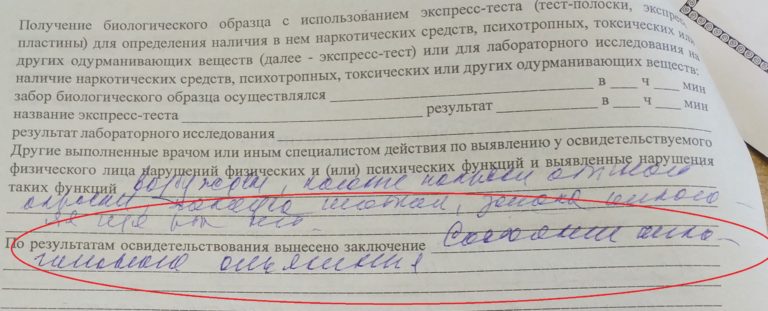 Получение биологического образца с использованием экспресс-теста (тест-полоски, экспресс-
пластины) для определения наличия в нем наркотических средств, психотропных, токсических или
других одурманивающих веществ (далее - экспресс-тест) или для лабораторного исследования на
наличие наркотических средств, психотропных, токсических или других одурманивающих веществ:
забор биологического образца осуществлялся в ч мин
название экспресс-теста результат в ч мин
результат лабораторного исследования
Другие выполненные врачом или иным специалистом действия по выявлению у освидетельствуемого
физического лица нарушений физических и (или) психических функций и выявленные нарушения
таких функций
По результатам освидетельствования вынесено заключение Состояние алко-
гольного опьянения